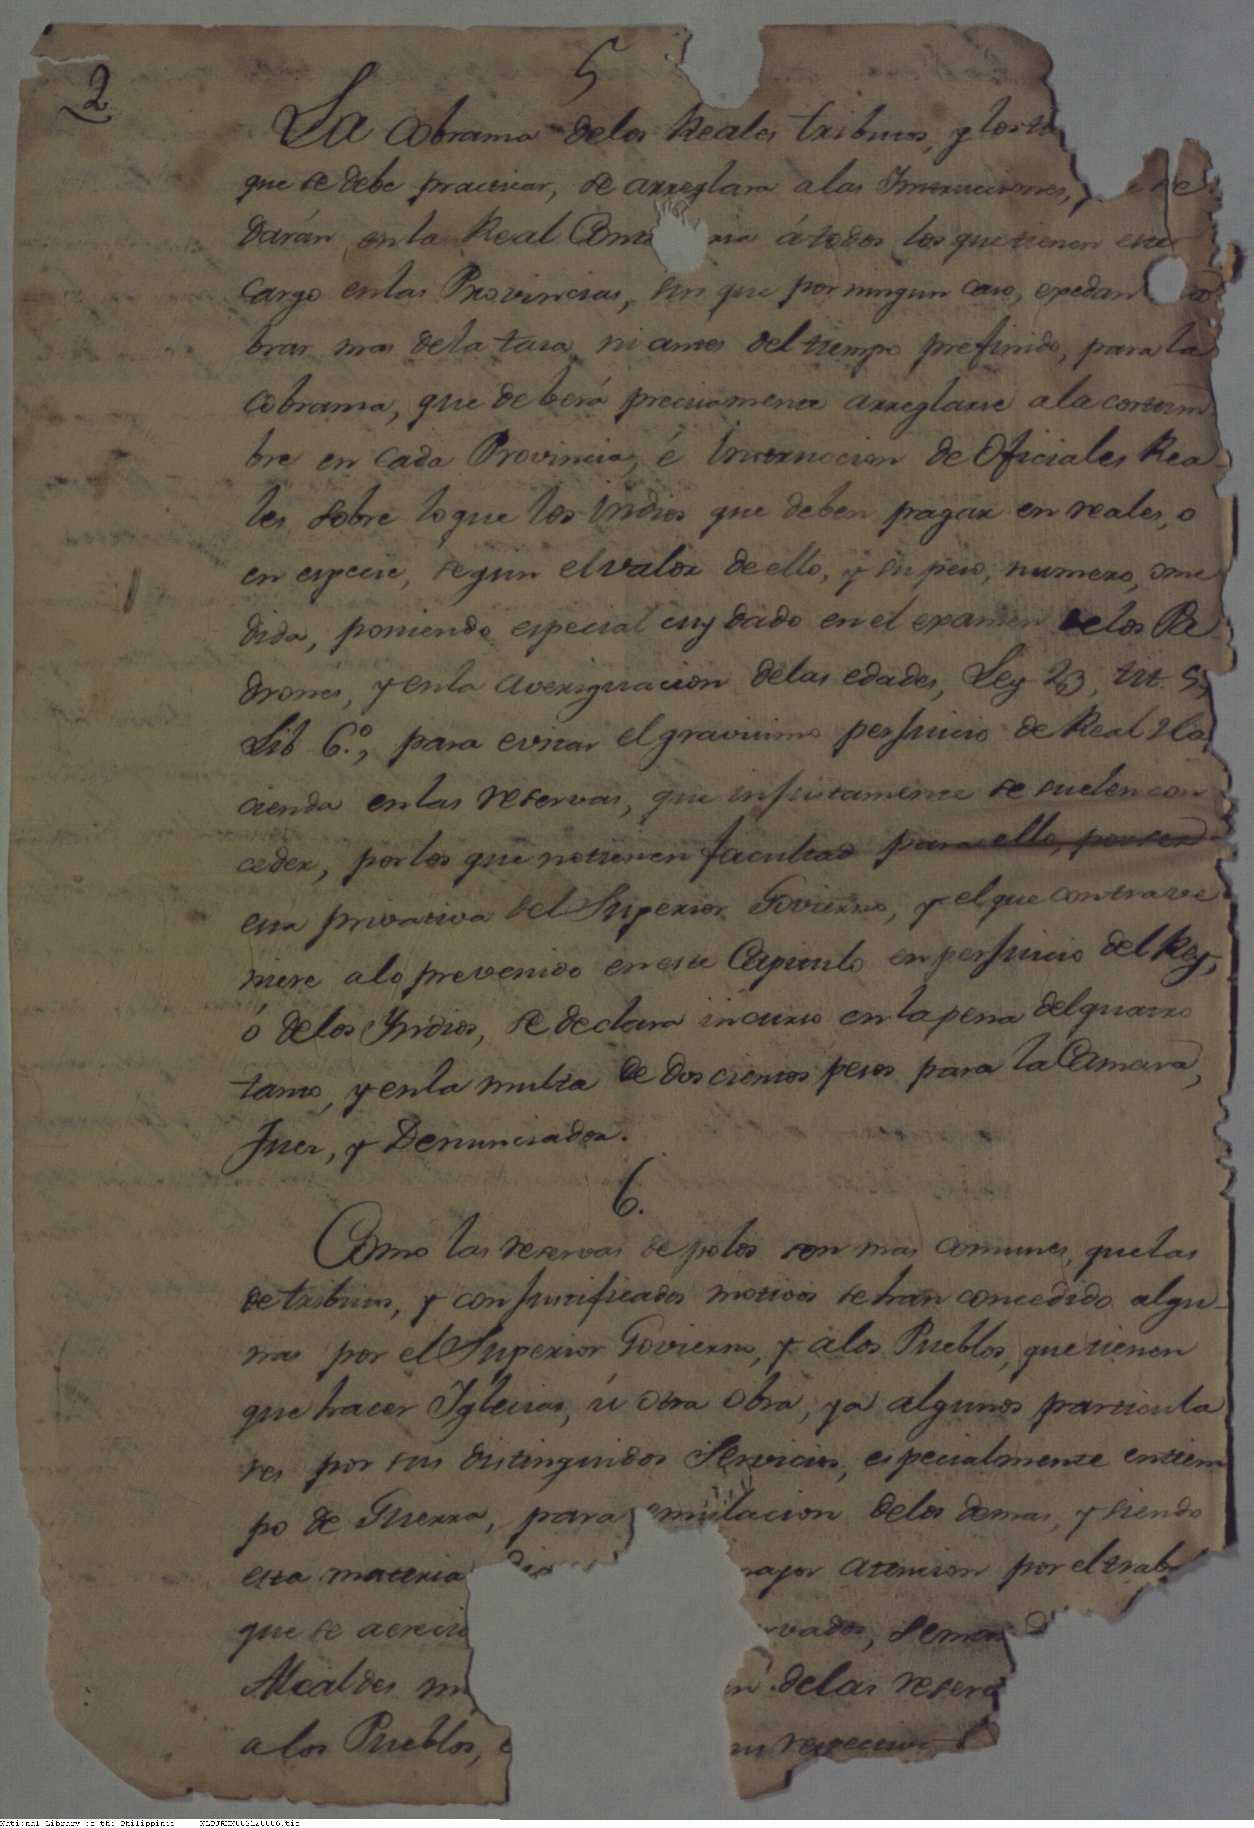 2
5
La Cobranza delos Reales tributos, y los
que se debe practicar, se arreglara a las Instrucciones,
darán en la Real á todos los que tienen este
cargo en las Provincias, sin que por ningun caso, excedan
brar mas de la tasa ni antes del tiempo prefinido, para la
cobranza, que deberá precisamente arreglarse a la costum
bre en cada Provincia, é Instruccion de Oficiales Rea-
les, sobre lo que los indios que deben pagar en reales, o
en especie, segun el valor de ello, y su peso, numero, o me
dida, poniendo especial cuydado en el examen delos Pa
drones, y en la averiguacion delas edades, Ley 23, tit. 5,
Lib 6.º, para evitar el gravisimo perjuicio de Real Ha
cienda en las reservas, que injustamente se suelen con
ceder, por los que no tienen facultad para ello, por ser
esta privativa del Superior Govierno, y el que contrave
niere a lo prevenido en este Capitulo en perjuicio del Rey,
ó delos Yndios, se declara incurso en la pena del quarto
tanto, y en la multa de doscientos pesos para la Camara,
Juez, y Denunciador.
6.
Como las reservas de polos son mas comunes, que las
de tributos, y con justificados motivos se han concedido algu-
nas por el Superior Govierno, y a los Pueblos, que tienen
que hacer Iglesias, ú otra obra, y a algunos particula
res por sus distinguidos Servicios, especialmente en tiem
po de Guerra, para emulacion delos demas, y siendo
esta materia mayor atencion por el trab
que se vados, se
Alcaldes delas reserv
a los Pueblos,
National Library of the Philippines